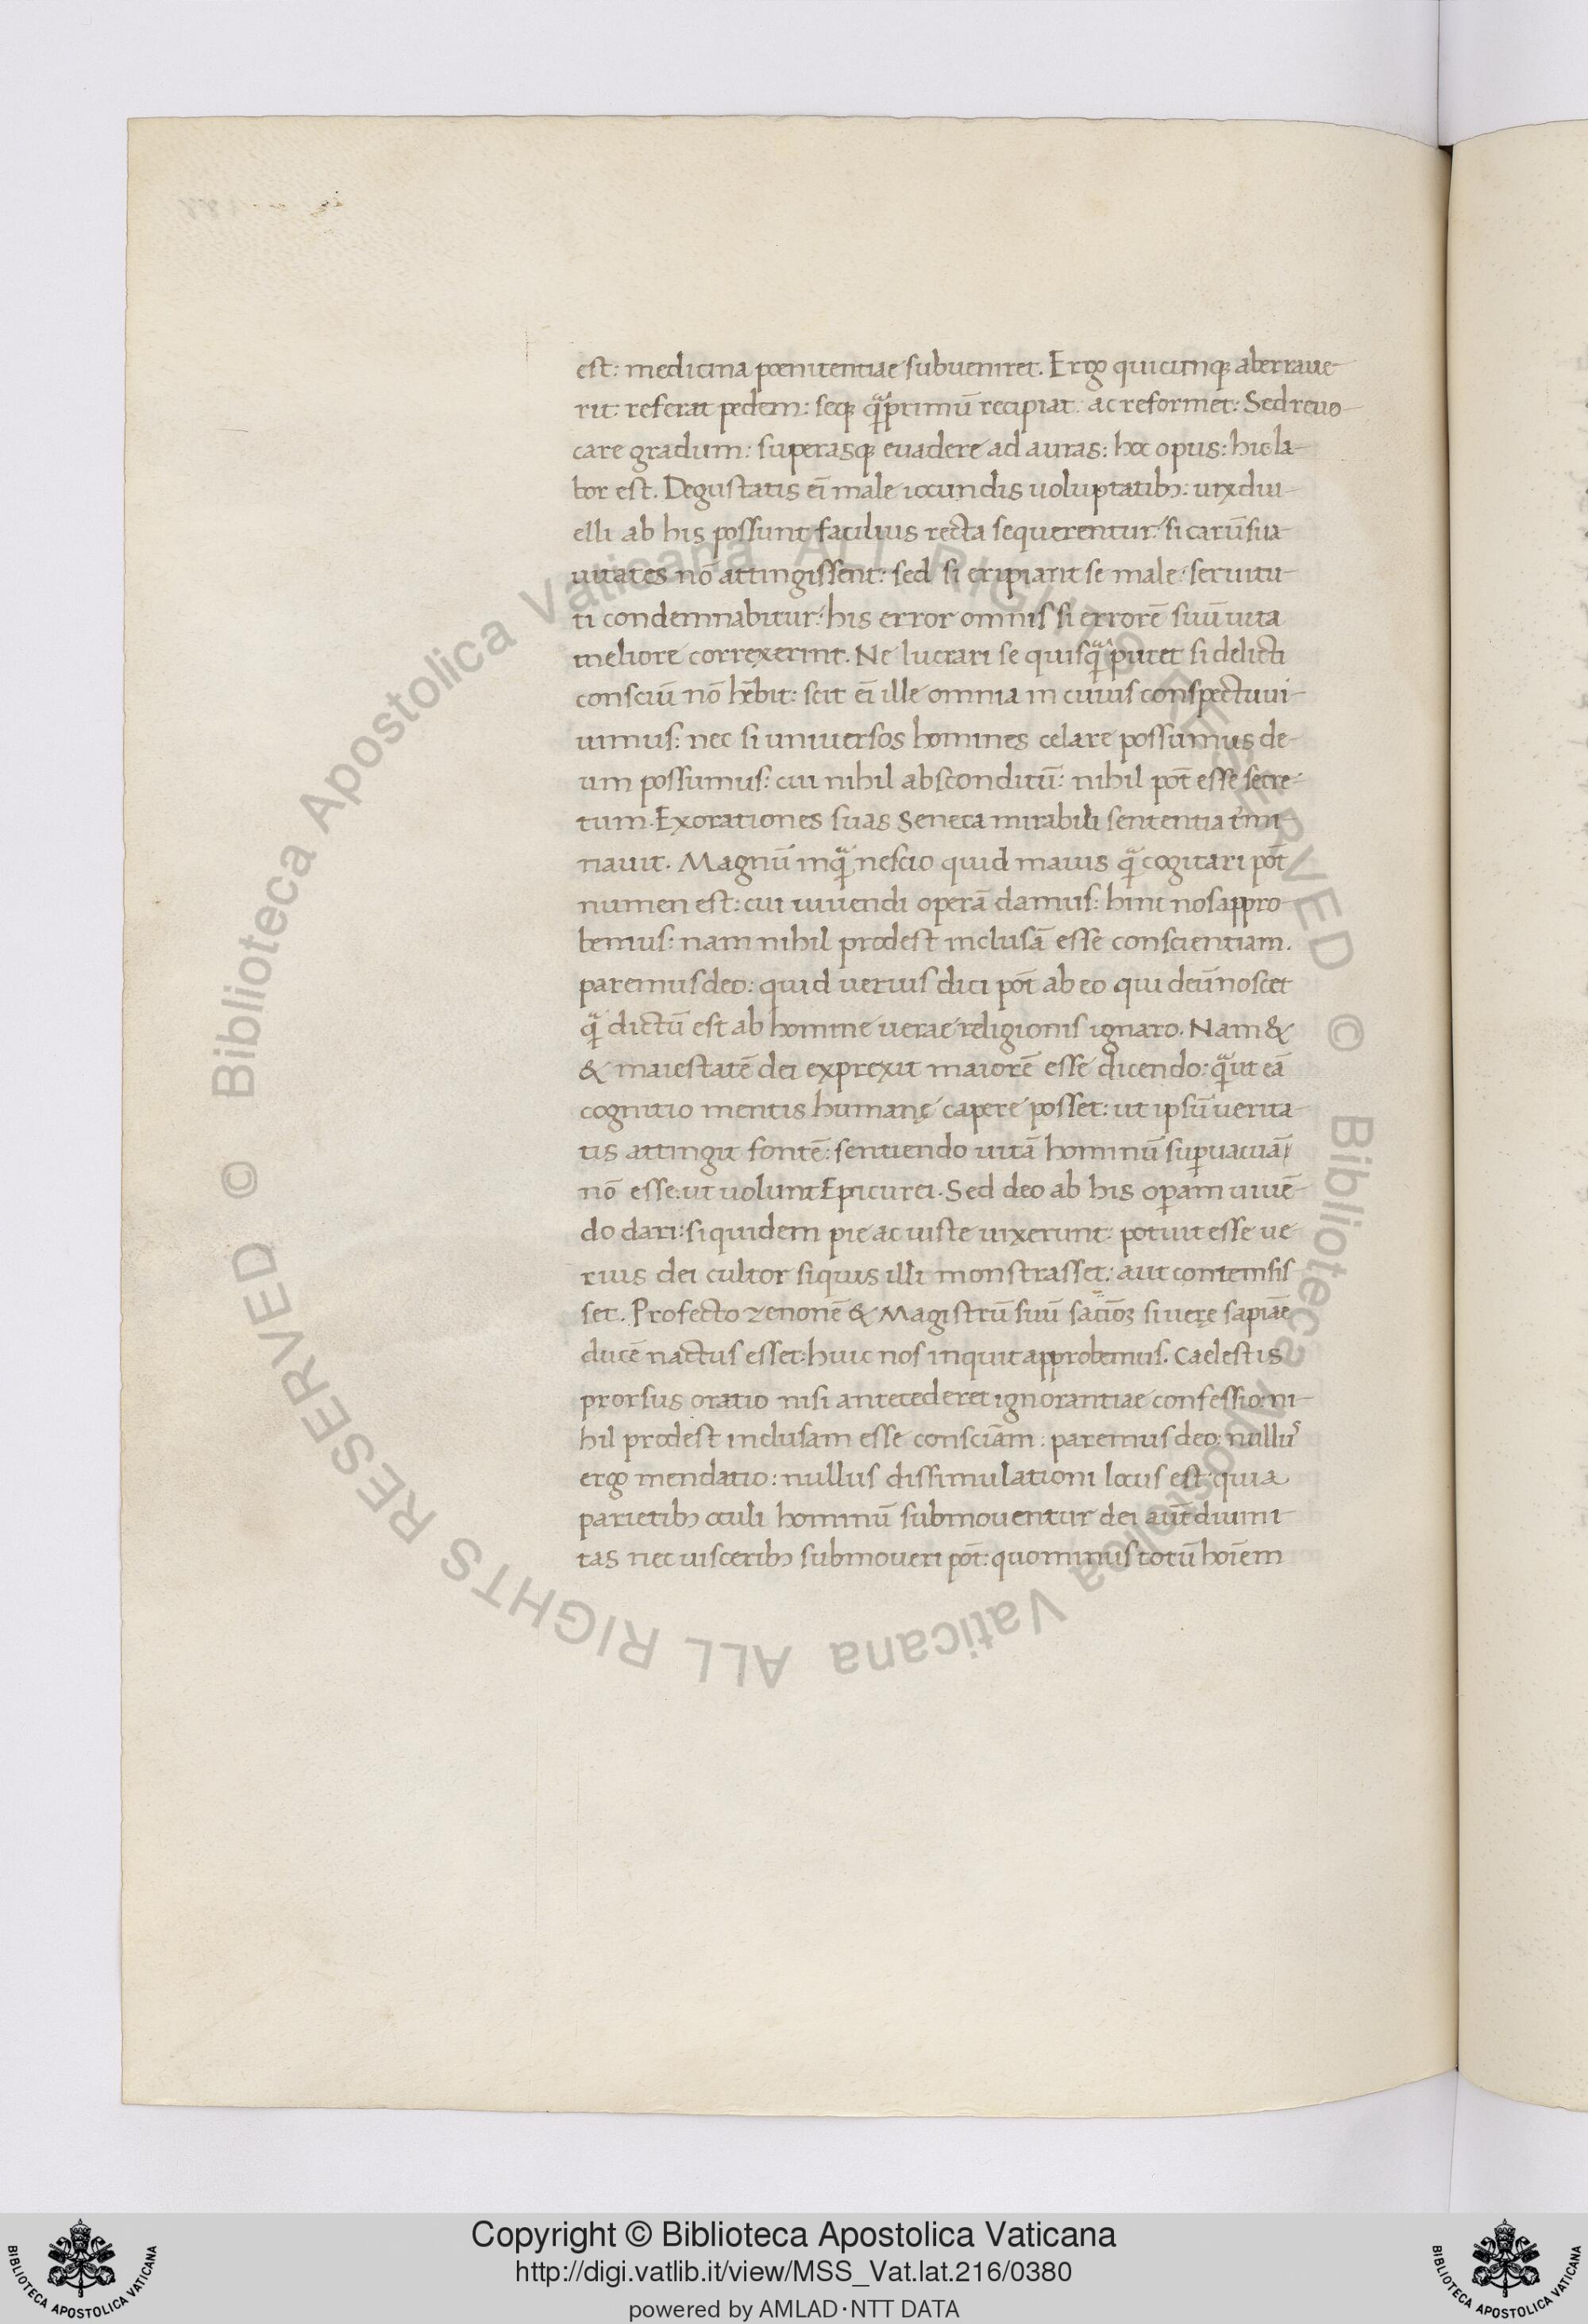 est: medicina poenitentiae subueniret. Ergo quicunq; aberraue-
rit referat pedem: seq; quāprimū recipiat ac reformet: Sed reuo-
care gradum: superasq; euadere ad auras: hoc opus: hic la-
bor est. Degustatis eī male iocundis uoluptatib;: uix diu-
elli ab his possunt facilius recta sequerentur: si earū sua-
uitates nō attingissent: sed si eripiant se male seruitu-
ti condemnabitur: his error omnis si errorē suū uita
meliore correxerint. Ne lucrari se quisquā putet si delicti
consciū nō hēbit: scit eī ille omnia in cuius conspectu ui-
uimus: nec si uniuersos homines celare possumus de-
um possumus: cui nihil absconditū: nihil pōt esse secre-
tum. Exorationes suas Seneca mirabili sententia t̄mi
nauit. Magnū inquā nescio quid maius quā cogitari pōt
numen est: cui uiuendi operā damus: hinc nos appro-
bemus: nam nihil prodest inclusā esse conscientiam.
paremus deo: quid uerius dici pōt ab eo qui deū noscet
quā dictū est ab homine uerae religionis ignaro. Nam &
& maiestatē dei exprexit maiorē esse dicendo: quā ut eā
cognitio mentis humanę capere posset: ut ipsū uerita-
tis attingit fontē: sentiendo uitā hominū supuacuā
nō esse: ut uolunt Epicurei. Sed deo ab his operam uiuē-
do dari: siquidem pie ac iuste uixerunt: potuit esse ue-
rius dei cultor siquis illi monstrasset: aut contemsis
set. Profecto zenonē & Magistrū suū satiōꝝ si uerę sapiāe
ducē nactus esset: huic nos inquit approbemus. Caelestis
prorsus oratio nisi antecederet ignorantiae confessio: ni-
hil prodest inclusam esse consciām: paremus deo: nullus
ergo mendatio: nullus dissimulationi locus est quia
parietib; oculi hominū submouentur dei autē diuini
tas nec uisceribus submoueri pōt: quominus totū hoīem
Copyright © Biblioteca Apostolica Vaticana
http://digi.vatlib.it/view/MSS_Vat.lat.216/0380
powered by AMLAD·NTT DATA
BIBLIOTECA APOSTOLICA VATICANA
BIBLIOTECA APOSTOLICA VATICANA
© Biblioteca Apostolica Vaticana ALL RIGHTS RESERVED © Biblioteca Apostolica Vaticana ALL RIGHTS RESERVED